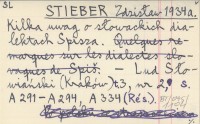 SL
STIEBER Zdzisław 1934a.
Kilka uwag o słowackich dia-
lektach Spisza. Quelques re-
marques sur les dialectes slo-
vaques de Spiš. – Lud Sło-
wiański (Kraków) t3, nr 2, s.
A 291 – A 294, A 334 (Rés.).